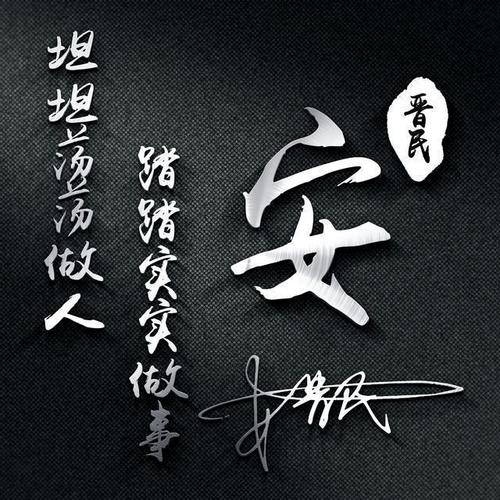 坦坦荡荡做人
踏踏实实做事
安
晋民
安晋民